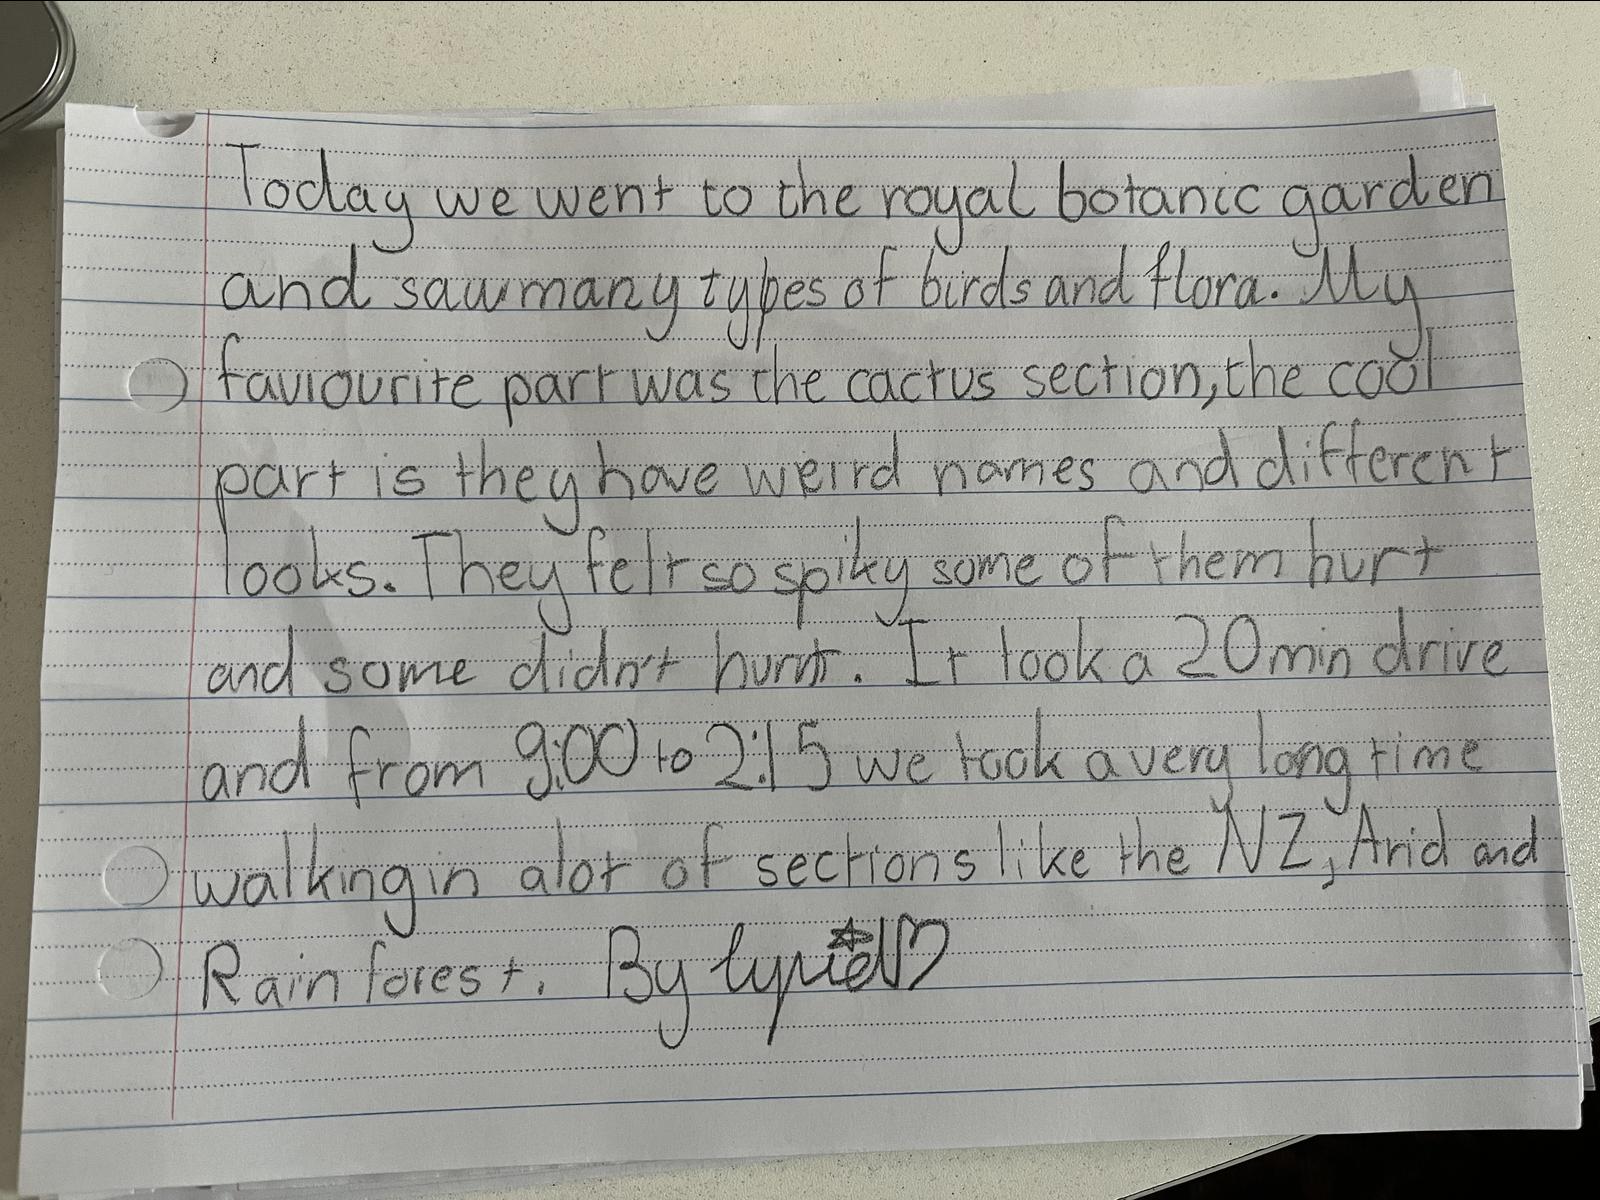 Today we went to the royal botanic garden
and saw many types of birds and flora. My
faviourite part was the cactus section, the cool
part is they have weird names and different
looks. They felt so spiky some of them hurt
and some didn't hurt. It took a 20min drive
and from 9:00 to 2:15 we took a very long time
walking in alot of sections like the NZ, Arid and
Rainforest. By